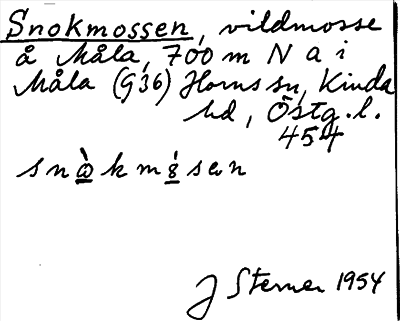 Snokmossen, vildmosse
å Måla, 700 m N a i
Måla (G36) Horns sn, Kinda
hd, Östg.l.
454
snὼ̲km s̲̍sen
J Sterner 1954